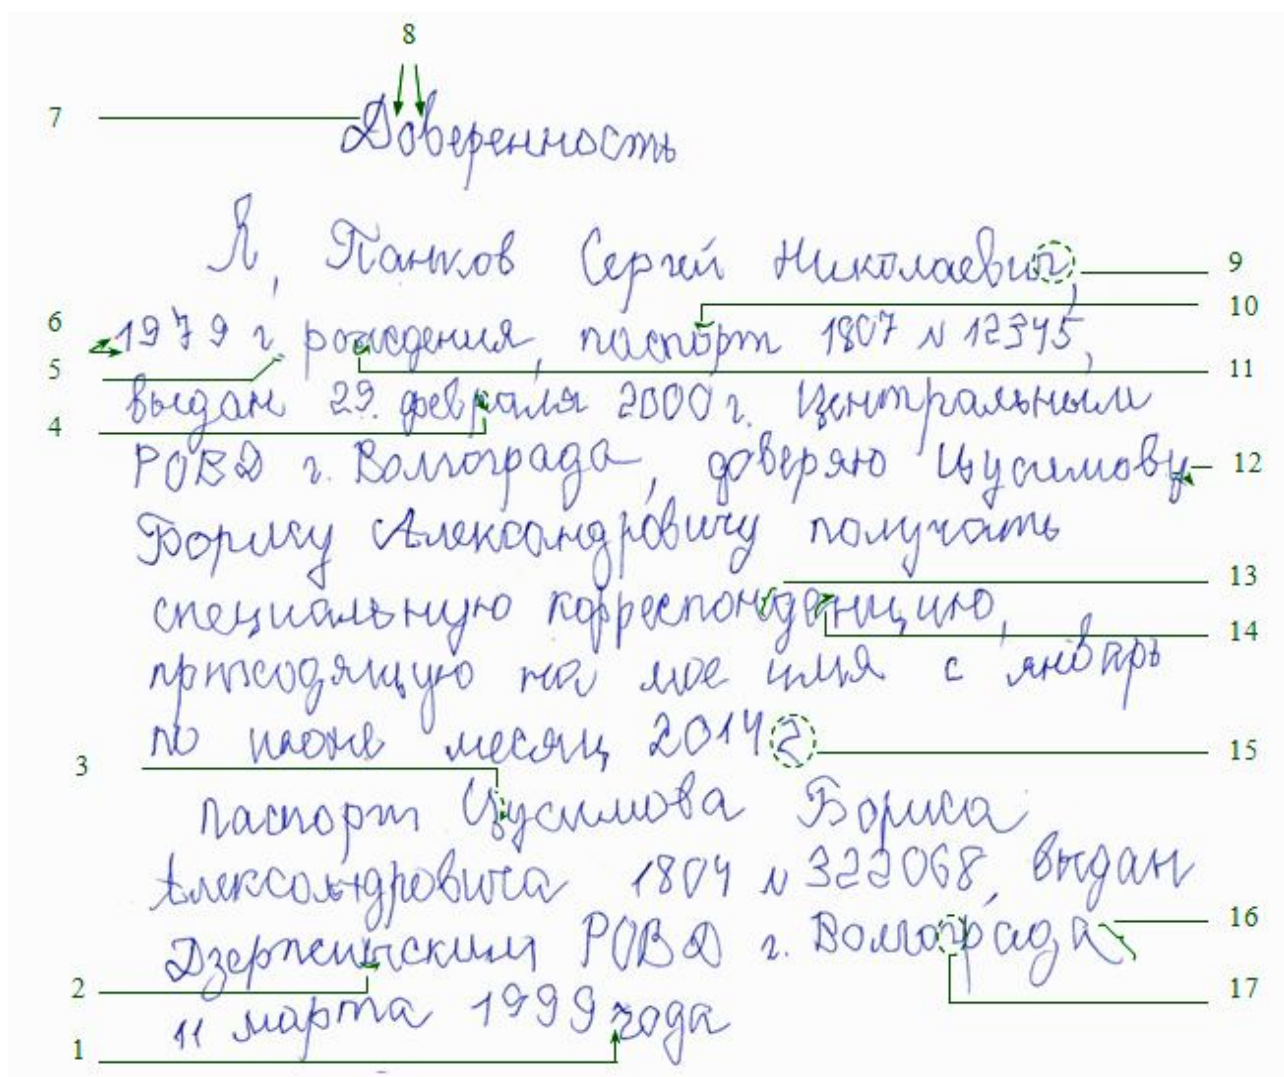 8
7 Доверенность
Я, Панков Сергей Николаевич, 9
10
6 1979 г рождения, паспорт 1807 № 12345,
5 11
выдан 29. февраля 2000 г. Центральным
4
РОВД г. Волгограда, доверяю Цусимову 12
Борису Александровичу получать
13
специальную корреспонденцию,
14
приходящую на мое имя с январь
по июнь месяц 2014 г 15
3
Паспорт Цусимова Бориса
Александровича 1804 № 322068, выдан
16
Дзержинским РОВД г. Волгограда
2 17
11 марта 1999 года
1